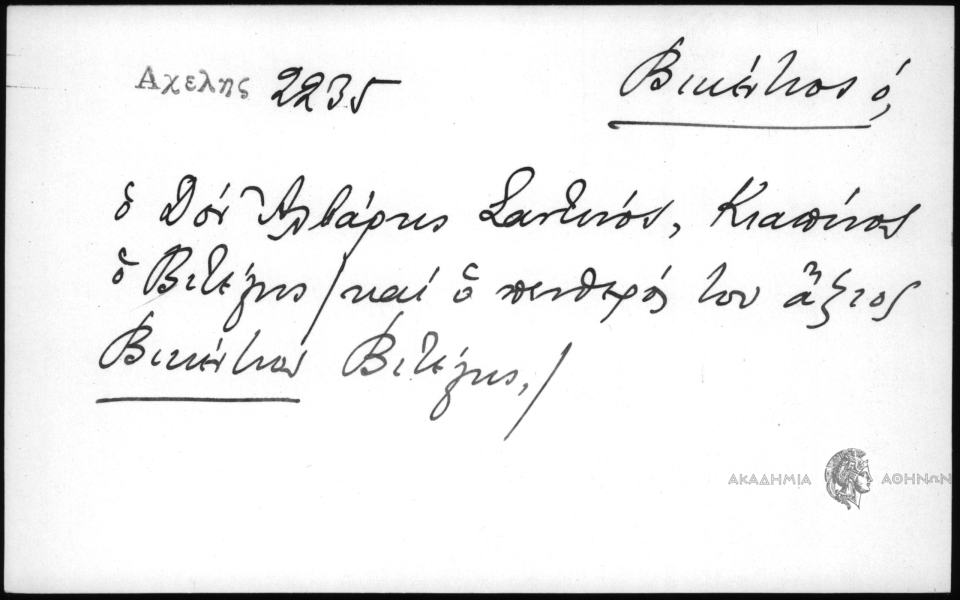 Αχελης 2235
Βικέντιος ὁ,
ὁ Δὸν Ἀλβάρης Σαντινός, Κιαπίνος
ὁ Βιτέλης / καὶ ὁ πενθερός του ἄξιος
Βικέντιος Βιτέλης, /
ΑΚΑΔΗΜΙΑ ΑΘΗΝΩΝ